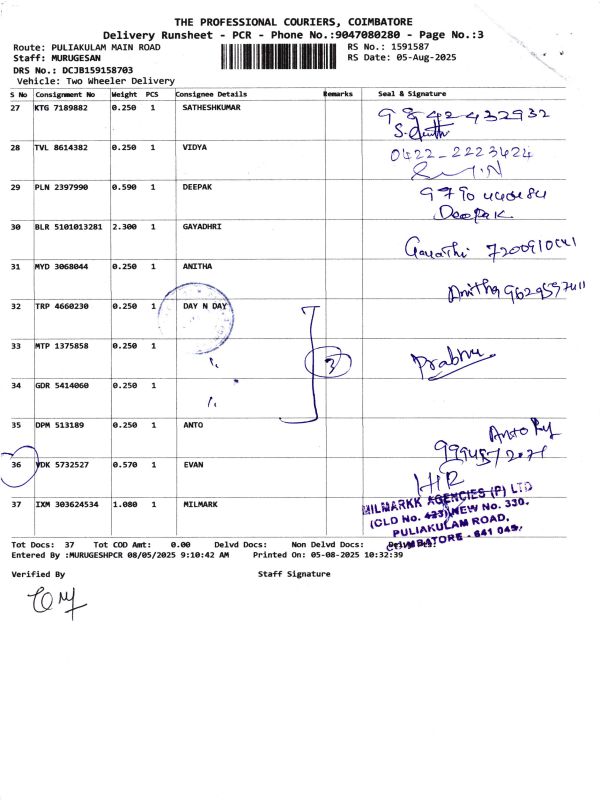 THE PROFESSIONAL COURIERS, COIMBATORE
Delivery Runsheet - PCR - Phone No.:9047080280 - Page No.:3
Route: PULIAKULAM MAIN ROAD RS No.: 1591587
Staff: MURUGESAN RS Date: 05-Aug-2025
DRS No.: DCJB159158703
Vehicle: Two Wheeler Delivery
S No Consignment No Weight PCS Consignee Details Remarks Seal & Signature
27 KTG 7189882 0.250 1 SATHESHKUMAR 9842432932
28 TVL 8614382 0.250 1 VIDYA 0422-2223424
29 PLN 2397990 0.590 1 DEEPAK
Deepak
30 BLR 5101013281 2.300 1 GAYADHRI Gayathi
31 MYD 3068044 0.250 1 ANITHA Anitha
32 TRP 4660230 0.250 1 DAY N DAY
33 MTP 1375858 0.250 1 " 3 Prabhu
34 GDR 5414060 0.250 1 "
35 DPM 513189 0.250 1 ANTO Anto
36 VDK 5732527 0.570 1 EVAN
37 IXM 303624534 1.080 1 MILMARK
MILMARKK AGENCIES (P) LTD
(OLD No. 423) NEW No. 330.
PULIAKULAM ROAD,
COIMBATORE - 641 045.
Tot Docs: 37 Tot COD Amt: 0.00 Delvd Docs: Non Delvd Docs:
Entered By :MURUGESHPCR 08/05/2025 9:10:42 AM Printed On: 05-08-2025 10:32:39
Verified By Staff Signature